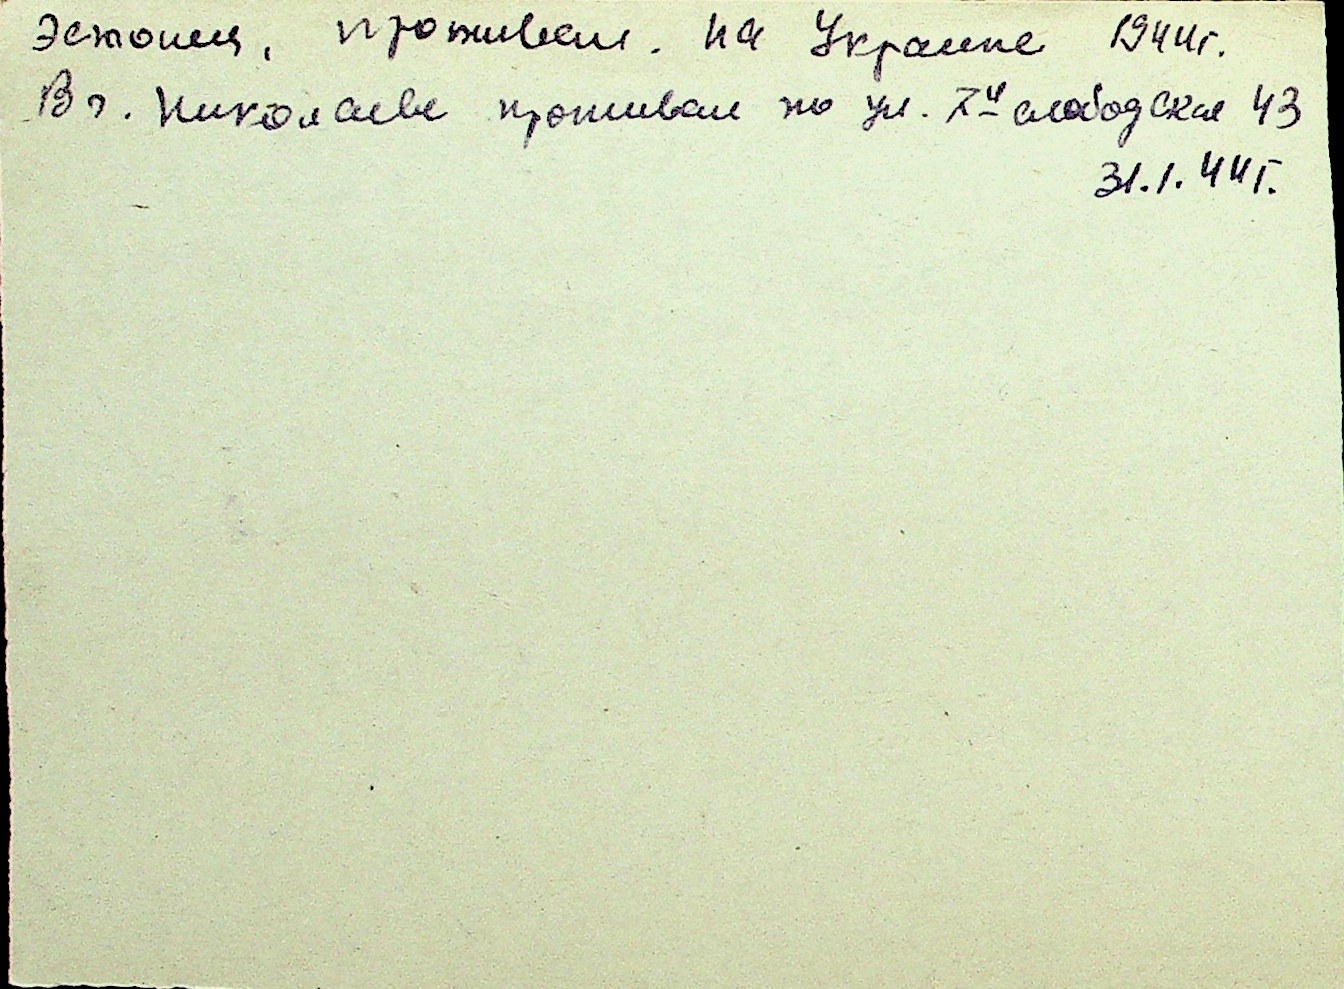 Эстонец, проживал. на Украине 1944г.
В г. Николаеве проживал по ул. слободская 43
31.1.44г.